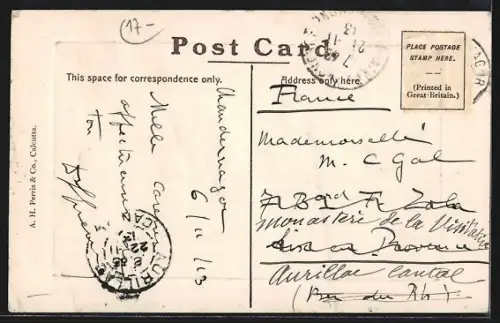 17-
Post Card.
This space for correspondence only.
Address only here.
PLACE POSTAGE
STAMP HERE.
(Printed in
Great-Britain.)
A. H. Perris & Co., Calcutta.
Chandernagor
6/11/13
Mille caresses
affectueuses
France
Mademoiselle
M. C Gal
7 Bard E. Zola
monastère de la Visitation
Aix en Provence
Aurillac Cantal
(Bou du Rh)
AURILLAC